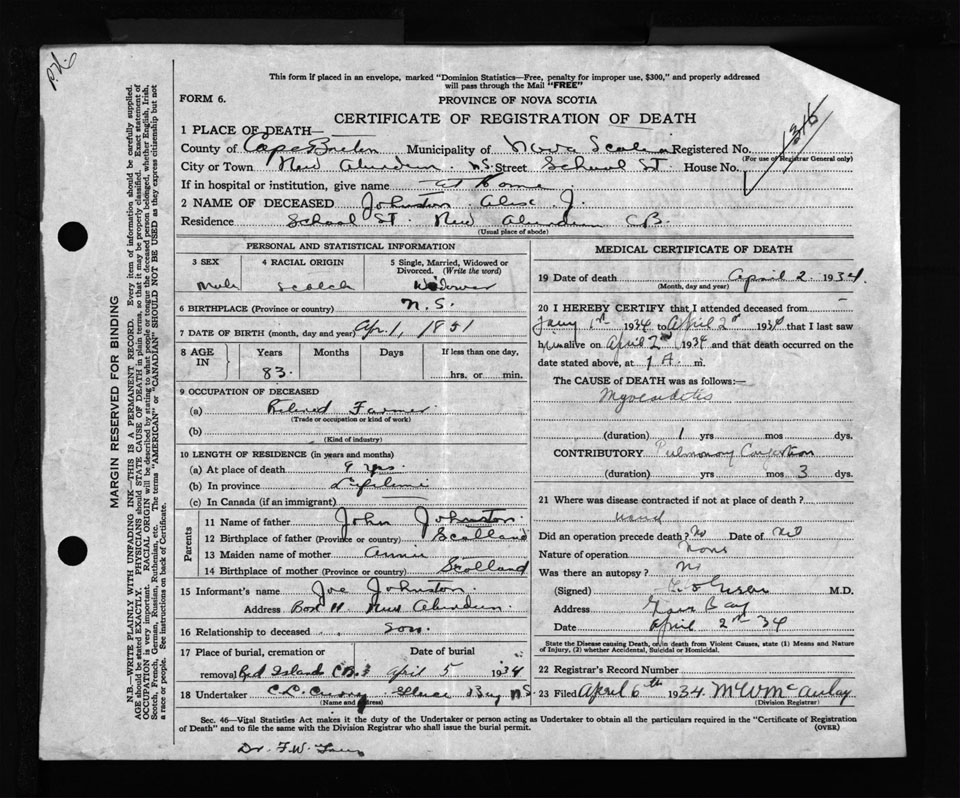 P.N.
This form if placed in an envelope, marked "Dominion Statistics—Free, penalty for improper use, $300," and properly addressed
will pass through the Mail "FREE"
FORM 6.
PROVINCE OF NOVA SCOTIA
CERTIFICATE OF REGISTRATION OF DEATH
1316
1 PLACE OF DEATH—
County of Cape Breton Municipality of Nova Scotia Registered No.
(For use of Registrar General only)
City or Town New Aberdeen N.S. Street School St. House No.
If in hospital or institution, give name at home
2 NAME OF DECEASED Johnston Alex J.
Residence School St. New Aberdeen C.B.
(Usual place of abode)
PERSONAL AND STATISTICAL INFORMATION
3 SEX 4 RACIAL ORIGIN 5 Single, Married, Widowed or Divorced. (Write the word)
Male Scotch Widower
6 BIRTHPLACE (Province or country) N.S.
7 DATE OF BIRTH (month, day and year) Apr. 1, 1851
8 AGE IN Years Months Days If less than one day.
83 hrs. or min.
9 OCCUPATION OF DECEASED
(a) Retired Farmer
(Trade or occupation or kind of work)
(b)
(Kind of industry)
10 LENGTH OF RESIDENCE (in years and months)
(a) At place of death 9 yrs.
(b) In province Lifetime
(c) In Canada (if an immigrant)
Parents
11 Name of father John Johnston
12 Birthplace of father (Province or country) Scotland
13 Maiden name of mother Annie
14 Birthplace of mother (Province or country) Scotland
15 Informant's name Joe Johnston
Address Box 11 New Aberdeen.
16 Relationship to deceased son
17 Place of burial, cremation or Date of burial
removal Red Island C.B. April 5 1934
18 Undertaker C.C. Curry Glace Bay N.S.
(Name and address)
MEDICAL CERTIFICATE OF DEATH
19 Date of death April 2 1934
(Month, day and year)
20 I HEREBY CERTIFY that I attended deceased from
Jany 1st 1934 to April 2nd 1934 that I last saw
him alive on April 2nd 1934 and that death occurred on the
date stated above, at 1 A. m.
The CAUSE OF DEATH was as follows:—
Myocarditis
(duration) 1 yrs mos dys.
CONTRIBUTORY Pulmonary Congestion
(duration) yrs mos 3 dys.
21 Where was disease contracted if not at place of death?
Did an operation precede death? No Date of
Nature of operation None
Was there an autopsy? No
(Signed) M.D.
Address Glace Bay
Date April 2nd 34
State the Disease causing Death, or in death from Violent Causes, state (1) Means and Nature
of Injury, (2) whether Accidental, Suicidal or Homicidal.
22 Registrar's Record Number
23 Filed April 6th 1934. McAulay
(Division Registrar)
Sec. 46—Vital Statistics Act makes it the duty of the Undertaker or person acting as Undertaker to obtain all the particulars required in the "Certificate of Registration
of Death" and to file the same with the Division Registrar who shall issue the burial permit.
(OVER)
Dr. F.W.
MARGIN RESERVED FOR BINDING
N.B.—WRITE PLAINLY WITH UNFADING INK—THIS IS A PERMANENT RECORD. Every item of information should be carefully supplied.
AGE should be stated EXACTLY. PHYSICIANS should STATE CAUSE OF DEATH in plain terms, so that it may be properly classified. Exact statement of
OCCUPATION is very important. RACIAL ORIGIN will be described by stating to what people or tongue the deceased person belonged, whether English, Irish,
Scotch, French, German, Russian, Ruthenian, etc. The terms "AMERICAN" or "CANADIAN" SHOULD NOT BE USED as they express citizenship but not
a race or people. See instructions on back of Certificate.